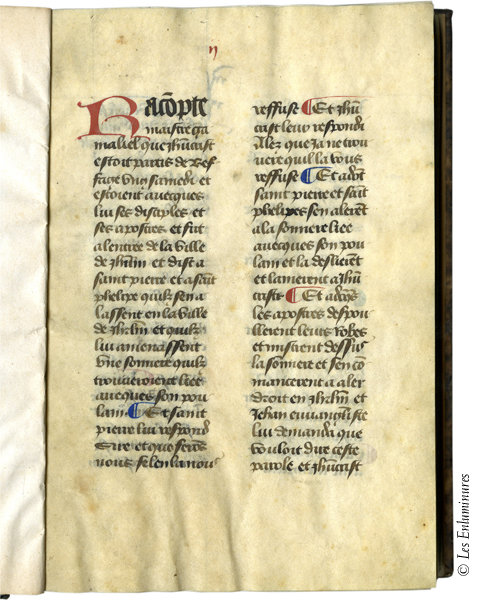 Racõpte
maistre ga
maliel que jhũcrist
estoit partis de Ref
fage ung samedi et
estoient avecques
luy ses disciples et
ses apostres et fut
a lentree de la ville
de jhrlm et dist a
saint pierre et a saĩt
phelipe quilz sen a
lassent en la ville
de jhrlm et quilz
luy amenassent
une sonniere quilz
trouveroient liee
avecques son pou
lain ¶ Et saint
pierre luy respond
Sire et que ferõs
nous se len la nous
reffuse ¶ Et jhũ
crist leur respondi
Alez que ja ne trou
vere quil la vous
reffuse ¶ Et adõt
saint pierre et saĩt
phelipes sen alerẽt
a la sonniere liee
avecques son pou
lain et la deslierẽt
et lamenerẽt a jhũ
crist ¶ Et adõcqs
les apostres despou
llerent leurs robes
et mistrent dessus
la sonniere et sen cõ
mancerent a aler
droit en jhrlm et
Jehan euvangliste
luy demanda que
vouloit dire ceste
parole et jhũcrist
© Les Enluminures